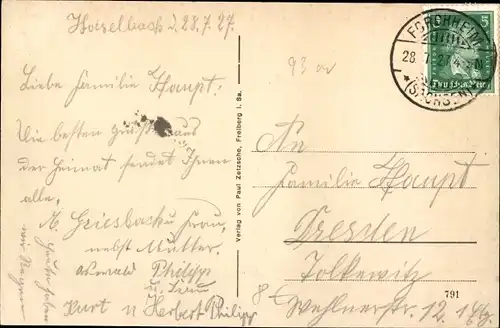 28.7.27.
Liebe Familie Haupt!
Die besten Grüße aus
der Heimat sendet Ihnen
alle,
A. Griesbach u Frau,
nebst Mutter.
Oswald Philipp
Kurt u Herbert Philipp
Heute haben
wir Regen
Verlag von Paul Zetzsche, Freiberg i. Sa.
93
FORCHHEIM
28. 7. 27. 4-5 N
* (SACHSEN)
5
An
Familie Haupt
Dresden
Tolkewitz
Wehlnerstr. 12. 14
791